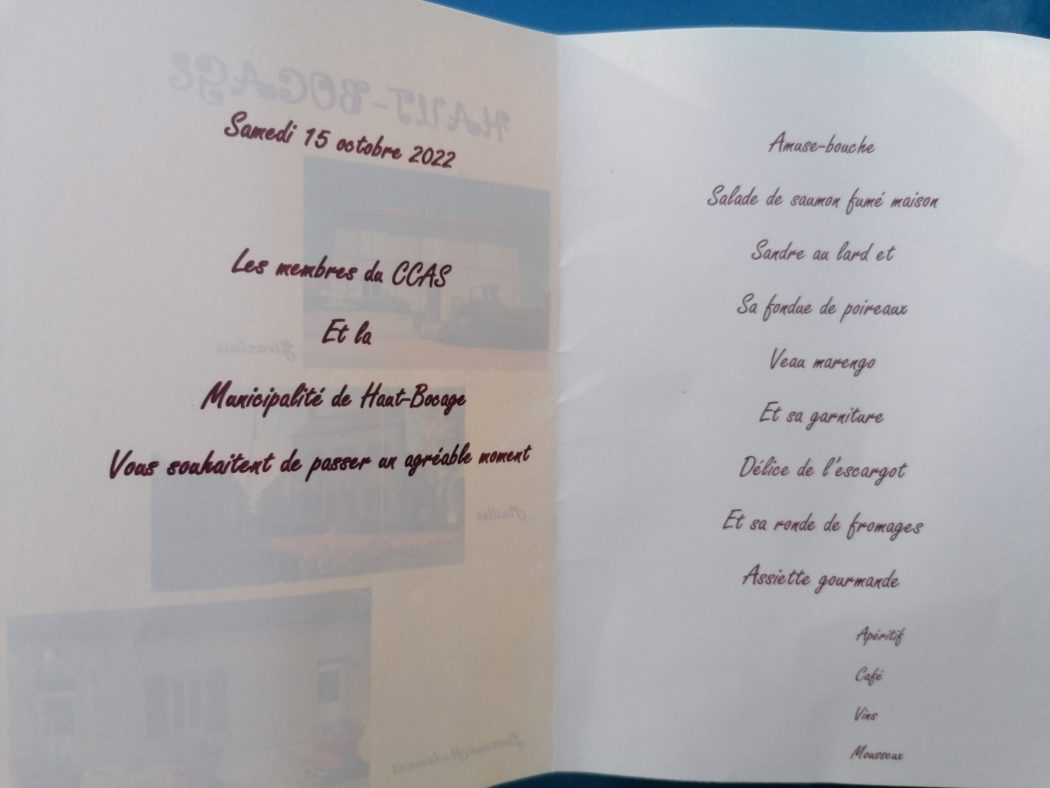 HAUT-BOCAGE
Samedi 15 octobre 2022
Les membres du CCAS
Et la
Municipalité de Haut-Bocage
Vous souhaitent de passer un agréable moment
Givarlais
Maillet
Louroux-Hodement
Amuse-bouche
Salade de saumon fumé maison
Sandre au lard et
Sa fondue de poireaux
Veau marengo
Et sa garniture
Délice de l'escargot
Et sa ronde de fromages
Assiette gourmande
Apéritif
Café
Vins
Mousseux